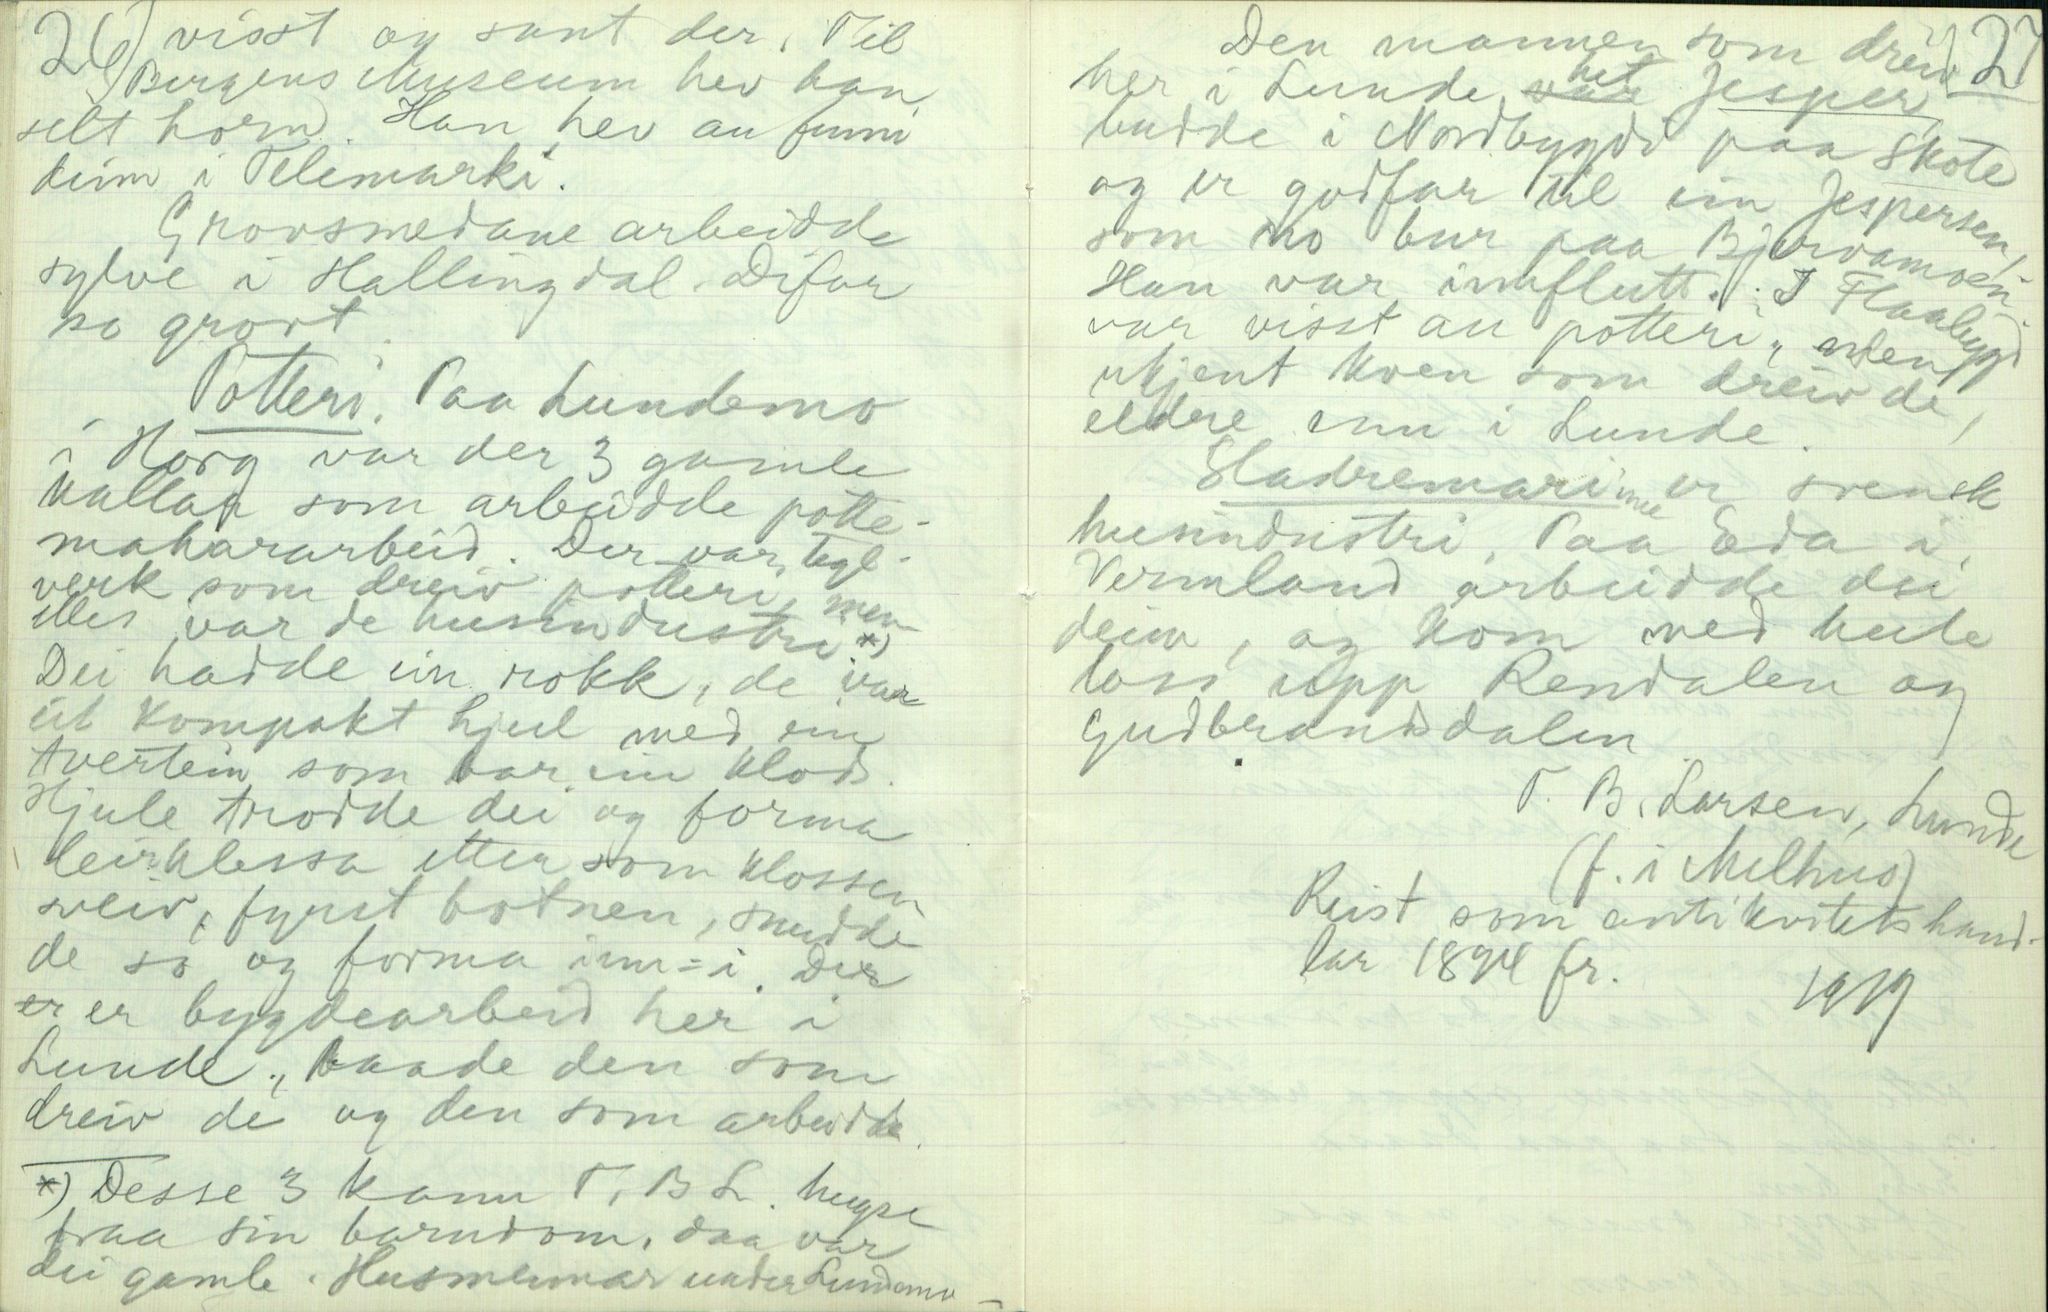 26) visst og sant der. Til
Bergens Museum hev han
selt horn. Han hev au funni
deim i Telimarki.
Grovsmedane arbeidde
sylve i Hallingdal. Difor
so grovt.
Potteri. Paa Lundemo
i Horg var der 3 gamle
kallar som arbeidde potte-
makararbeid. Der var tegl-
verk som dreiv potteri, men
elles var de husindustri *)
Dei hadde ein rokk, de var
eit kompakt hjul med ein
tvertein som bar ein klods.
Hjule trødde dei og forma
leirklessa etter som klossen
sveiv, fyrst botnen, snudde
de so og forma inn-i. Der
er er bygdearbeid her i
Lunde, baade den som
dreiv de og den som arbeidde.
*) Desse 3 kann T. B. L. hugse
fraa sin barndom, daa var
dei gamle. Husmennar under Lundemo
27
Den mannen som dreiv
her i Lunde var het Jesper,
budde i Nordbygdi paa Skote
og er godfar til ein Jespersen,
som no bur paa Bjervamoen.
Han var innflutt. I Flaabygd
var visst au potteri, men
ukjent kven som dreiv de,
eldre enn i Lunde.
Sladremari'ne er svensk
husindustri. Paa Eda i
Vermland arbeidde dei
deim, og kom med heile
lass upp Rendalen og
Gudbrandsdalen.
T. B. Larsen, Lunde
(f. i Melhus)
Reist som antikvitetshand-
lar 1894 fr.
1919